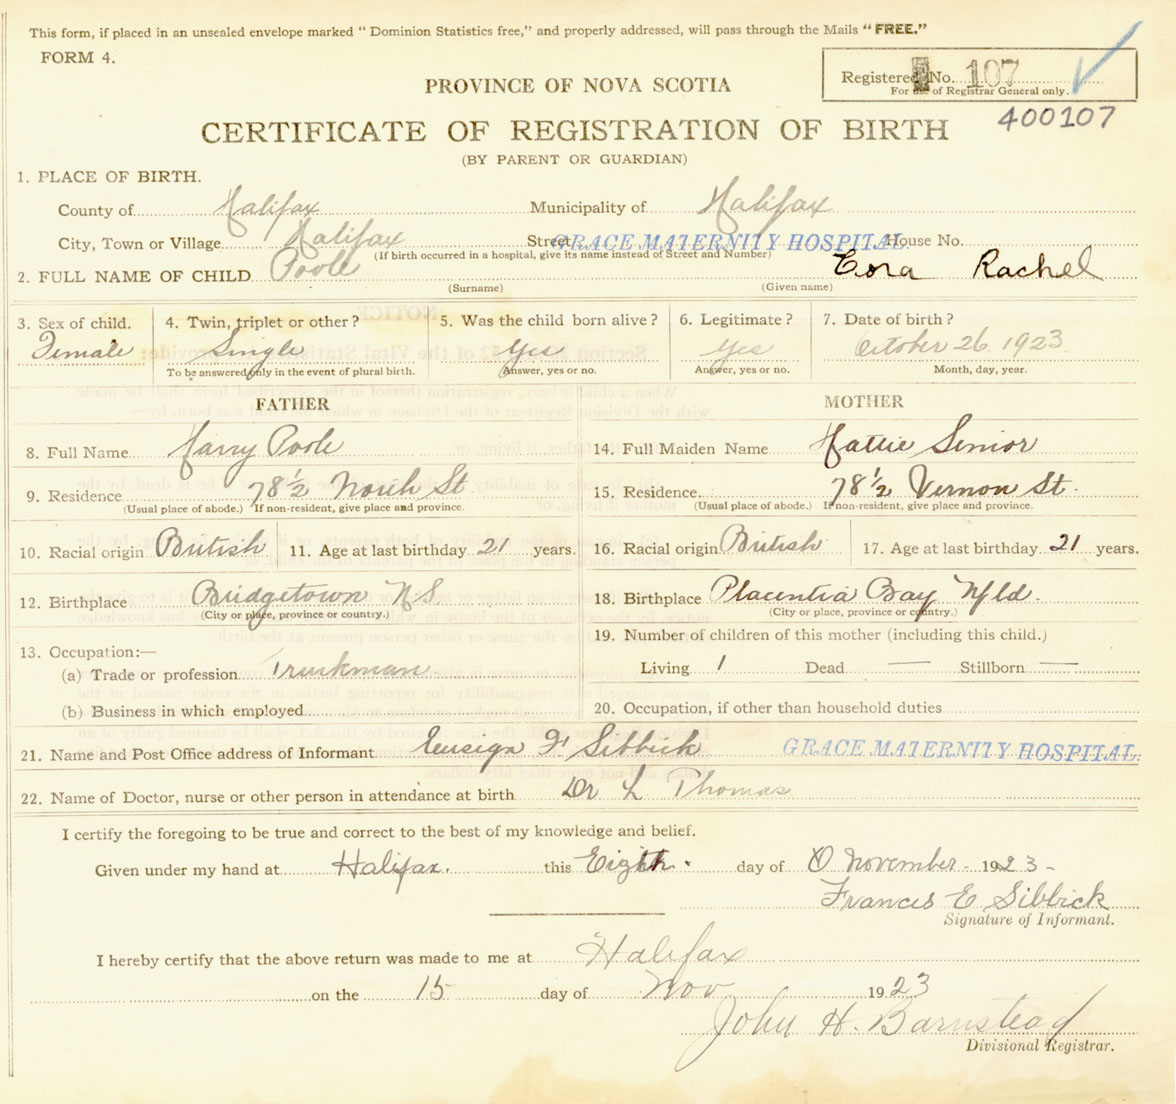 This form, if placed in an unsealed envelope marked “ Dominion Statistics free,” and properly addressed, will pass through the Mails “ FREE.”
FORM 4.
Registered No. 107
For use of Registrar General only.
400107
PROVINCE OF NOVA SCOTIA
CERTIFICATE OF REGISTRATION OF BIRTH
(BY PARENT OR GUARDIAN)
1. PLACE OF BIRTH.
County of Halifax Municipality of Halifax
City, Town or Village Halifax Street GRACE MATERNITY HOSPITAL. House No.
(If birth occurred in a hospital, give its name instead of Street and Number)
2. FULL NAME OF CHILD Poole Rachel
(Surname) (Given name)
3. Sex of child. 4. Twin, triplet or other ? 5. Was the child born alive ? 6. Legitimate ? 7. Date of birth ?
Female Single Yes Yes October 26 1923
To be answered only in the event of plural birth. Answer, yes or no. Answer, yes or no. Month, day, year.
FATHER MOTHER
8. Full Name Harry Poole 14. Full Maiden Name Hattie Senior
9. Residence 78½ North St 15. Residence. 78½ Vernon St.
(Usual place of abode.) If non-resident, give place and province. (Usual place of abode.) If non-resident, give place and province.
10. Racial origin British 11. Age at last birthday 21 years. 16. Racial origin British 17. Age at last birthday 21 years.
12. Birthplace Bridgetown N.S. 18. Birthplace Placentia Bay Nfld.
(City or place, province or country.) (City or place, province or country.)
13. Occupation:— 19. Number of children of this mother (including this child.)
(a) Trade or profession Truckman Living 1 Dead — Stillborn —
(b) Business in which employed 20. Occupation, if other than household duties
21. Name and Post Office address of Informant Ensign F Sibbick GRACE MATERNITY HOSPITAL.
22. Name of Doctor, nurse or other person in attendance at birth Dr L Thomas
I certify the foregoing to be true and correct to the best of my knowledge and belief.
Given under my hand at Halifax. this Eighth. day of November - 1923 -
Frances E Sibbick
Signature of Informant.
I hereby certify that the above return was made to me at Halifax
on the 15 day of Nov 1923
John H. Barnstead
Divisional Registrar.